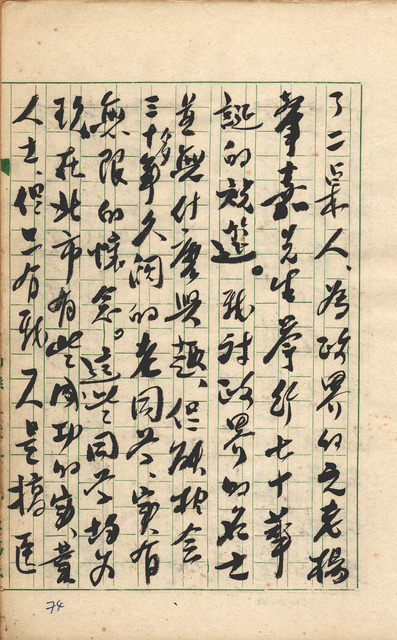 了二桌人、為政界的元老楊
肇嘉先生舉行七十華
誕的祝筵。我對政界的名士
並無什麼興趣、但願相会
三十多年久濶的老同學、實有
無限的懷念。這些同學均為
現在北市有些成功的實業
人士、但只有我一人是搞医
74